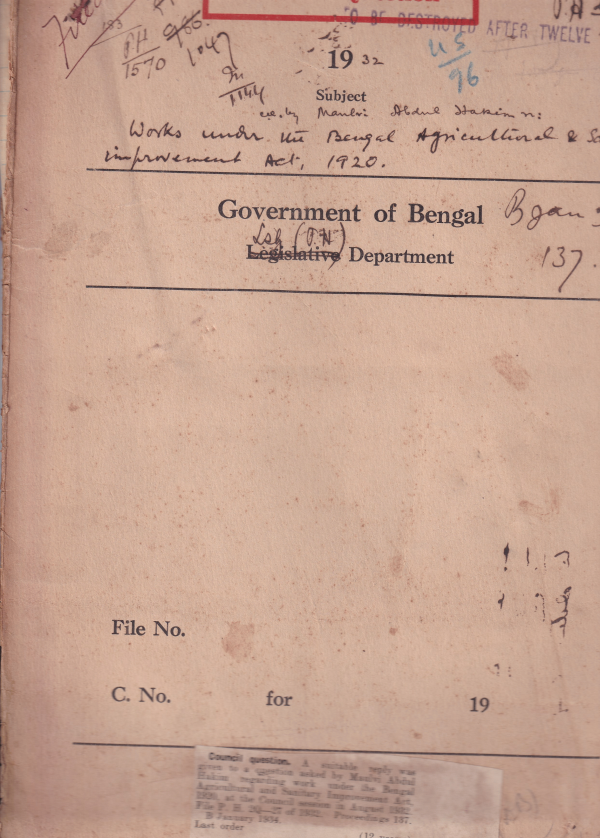 TO BE DESTROYED AFTER TWELVE
P.H
1570
986
1047
1144
US
96
1932
Subject
by Maulvi Abdul Hakim
Works under the Bengal Agricultural &
improvement Act, 1920.
Government of Bengal
B Jan
Lsg (P.H)
Legislative Department
137.
File No.
C. No. for 19
Council question. A suitable reply was
given to a question asked by Maulvi Abdul
Hakim regarding work under the Bengal
Agricultural and Sanitary Improvement Act,
1920, at the Council session in August 1932.
File P. H. of 1932. Proceedings 137.
B January 1934.
Last order